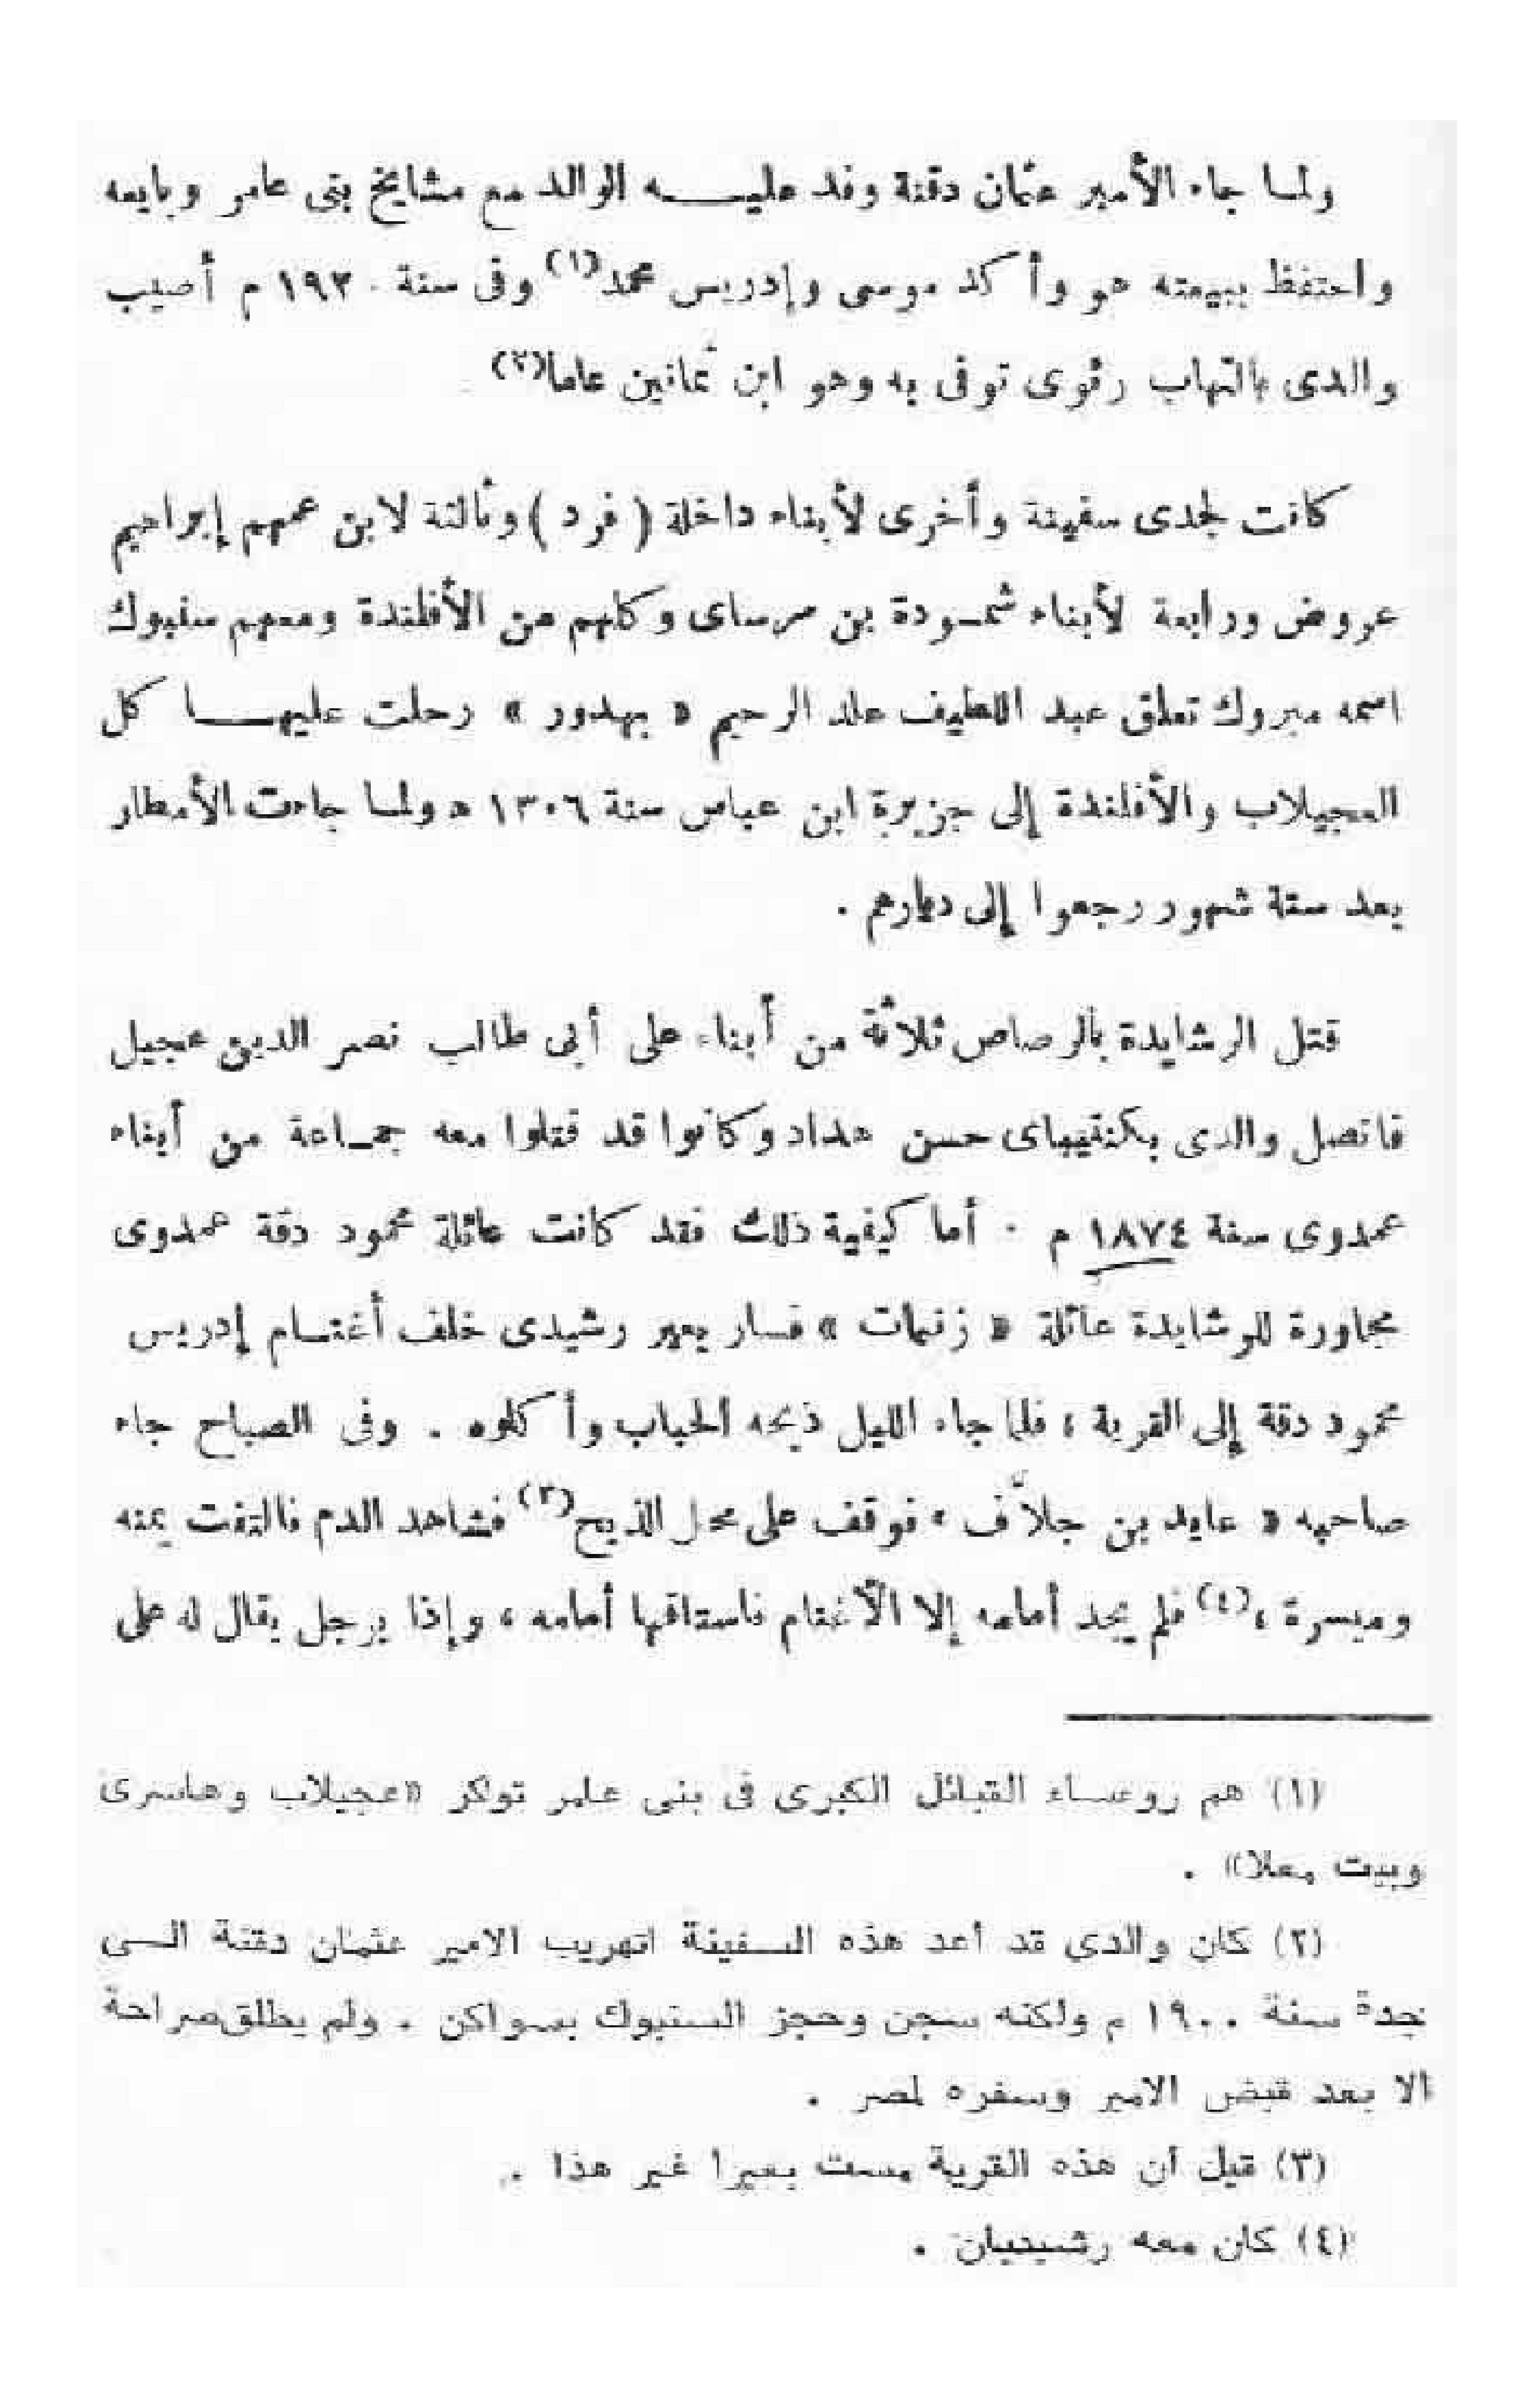 ولما جاء الأمير عثمان دقنة وفد عليه الوالد مع مشايخ بنى عامر وبايعه
واحتفظ ببيعته هو وأكد موسى وإدريس محمد(١) وفى سنة ١٩٣٠ م أصيب
والدى بالتهاب رئوى توفى به وهو ابن ثمانين عاما(٢)
كانت لجدى سفينة وأخرى لأبناء داخلة ( فرد ) وثالثة لابن عمهم إبراهيم
عروض ورابعة لأبناء شحودة بن مرساى وكلهم من الأفلندة ومعهم سنبوك
اسمه مبروك تعلق عبد اللطيف علد الرحيم « بهدور » رحلت عليها كل
العجيلاب والأفلندة إلى جزيرة ابن عباس سنة ١٣٠٦ ه ولما جاءت الأمطار
بعد ستة شهور رجعوا إلى ديارهم .
قتل الرشايدة بالرصاص ثلاثة من أبناء على أبى طالب نصر الدين عجيل
فاتصل والدى بكنتيباى حسن هداد وكانوا قد قتلوا معه جماعة من أبناء
عمدوى سنة ١٨٧٤ م . أما كيفية ذلك فقد كانت عائلة محمود دقة عمدوى
مجاورة للرشايدة عائلة « زنيمات » فسار بعير رشيدى خلف أغنام إدريس
محمود دقة إلى القرية ، فلما جاء الليل ذبحه الحباب وأكلوه . وفى الصباح جاء
صاحبه « عايد بن جلاّف » فوقف على محل الذبح(٣) فشاهد الدم فالتفت يمنه
وميسرة ،(٤) فلم يجد أمامه إلا الأغنام فاستاقها أمامه ، وإذا برجل يقال له على
(١) هم روءساء القبائل الكبرى فى بنى عامر توكر «عجيلاب وهاسرى
وبيت معلا» .
(٢) كان والدى قد أعد هذه السفينة لتهريب الامير عثمان دقنة الى
جدة سنة ١٩٠٠ م ولكنه سجن وحجز السنبوك بسواكن . ولم يطلق صراحة
الا بعد قبض الامير وسفره لمصر .
(٣) قيل أن هذه القرية مست بعيرا غير هذا .
(٤) كان معه رشيديان .